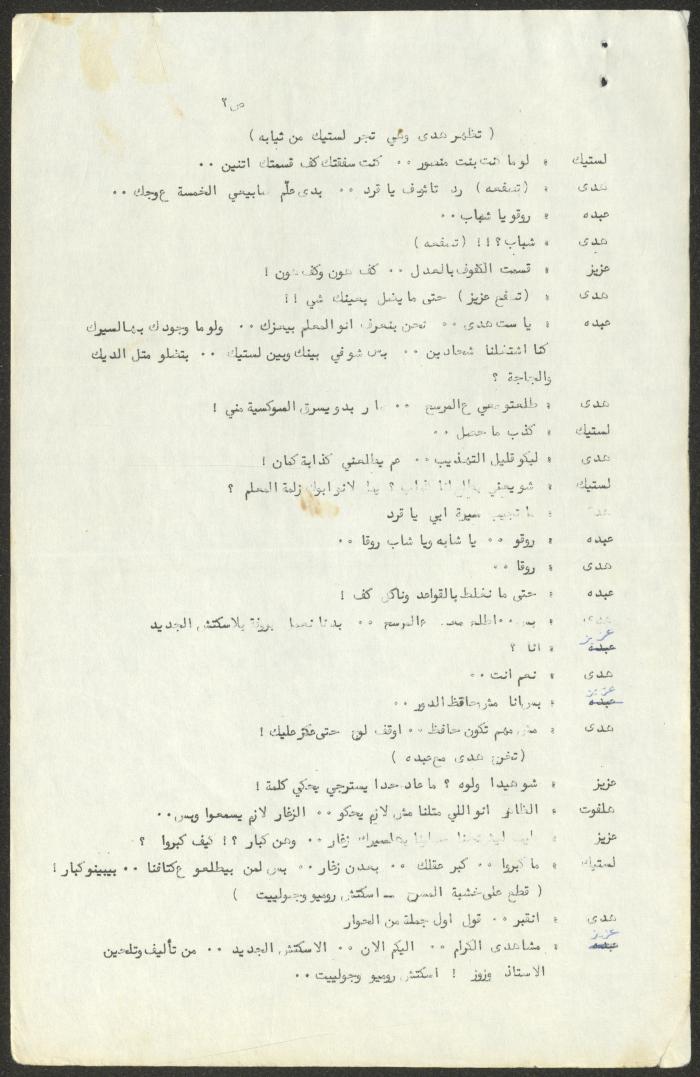 ص ٢
( تظهر هدى وهي تجر لستيك من ثيابه )
لستيك : لو ما كنت بنت منصور ٠٠ كنت سفقتك كف قسمتك اتنين ٠٠
هدى : ( تصفعه ) رد تاشوف يا قرد ٠٠ بدى علّم صابيعي الخمسة عوجك ٠٠
عبده : روقو يا شباب ٠٠
هدى : شباب ؟ !! ( تصفعه )
عزيز : قسمت الكفوف بالعدل ٠٠ كف هون وكف هون !
هدى : ( تصفع عزيز ) حتى ما يضل بعينك شي !!
عبده : يا ست هدى ٠٠ نحن بنعرف انو المعلم بيعزك ٠٠ ولو ما وجودك بهالسيرك
كنا اشتغلنا شحادين ٠٠ بس شو في بينك وبين لستيك ٠٠ بتضلو متل الديك
والجاجة ؟
هدى : طلعتو معي ع المرسح ٠٠ صار بدو يسرق السوكسية مني !
لستيك : كذب ما حصل ٠٠
هدى : ليكو قليل التهذيب ٠٠ عم يطالعني كذابة كمان !
لستيك : شو يعني لانو ابوك زلمة المعلم ؟
هدى : ما تجيب سيرة ابي يا قرد
عبده : روقو ٠٠ يا شابه ويا شاب روقا ٠٠
هدى : روقا ٠٠
عبده : حتى ما نغلط بالقواعد وناكل كف !
هدى : بس ٠٠ اطلع معي عالمرسح ٠٠ بدنا نعمل بروفا بلاسكتش الجديد
عزيز
عبده : انا ؟
هدى : نعم انت ٠٠
عزيز
عبده : بس انا مش حافظ الدور ٠٠
هدى : مش مهم تكون حافظ ٠٠ اوقف لوح حتى مكز عليك !
( تخرج هدى مع عبده )
عزيز : شو هيدا ولوه ؟ ما عاد حدا يسترجي يحكي كلمة !
هلفوت : الظاهر انو اللي متلنا مش لازم يحكو ٠٠ الزغار لازم يسمعوا وبس ٠٠
عزيز : ليه نحنا بهالسيرك زغار ٠٠ وهن كبار ؟ ! كيف كبروا ؟
لستيك : ما كبروا ٠٠ كبر عقلك ٠٠ بعدن زغار ٠٠ بس لمن بيطلعو ع كتافنا ٠٠ بيبينو كبار !
( قطع على خشبة المسرح ــ اسكتش روميو وجولييت )
هدى : انقبر ٠٠ قول اول جملة من الحوار
عزيز
عبده : مشاهدى الكرام ٠٠ اليكم الان ٠٠ الاسكتش الجديد ٠٠ من تأليف وتلحين
الاستاذ وزوز ! اسكتش روميو وجولييت ٠٠